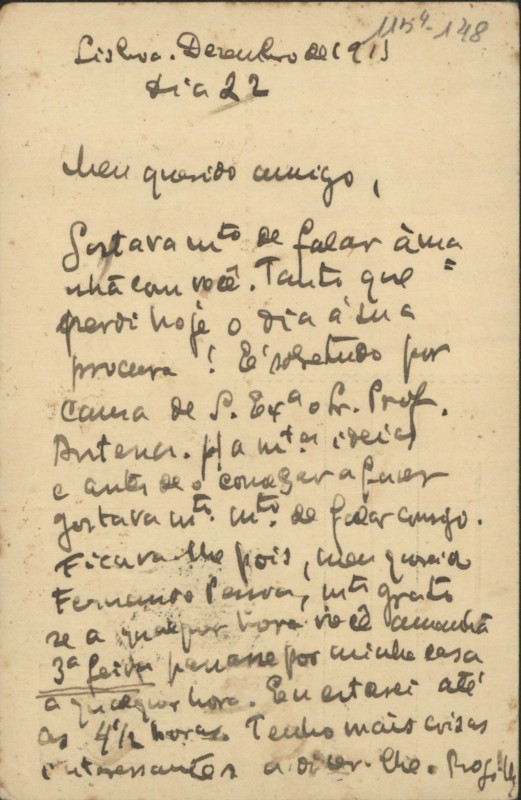 115⁴-148
Lisboa. Dezembro de 1915
Dia 22
Meu querido amigo,
Gostava mto de falar àma
nhã com você. Tanto que =
perdi hoje o dia á sua
procura! É sobretudo por
causa de S. Exª o Sr. Prof.
Antena. p/a mtas ideias
e antes de o começar a fazer
gostava mto. mto. de falar comsigo.
Ficava-lhe pois, meu querido
Fernando Pessoa, mto grato
se a qualquer hora você amanhã
3ª feira passasse por minha casa
a qualquer hora. Eu estarei até
as 4½ horas. Tenho mais coisas
interessantes a dizer-lhe.